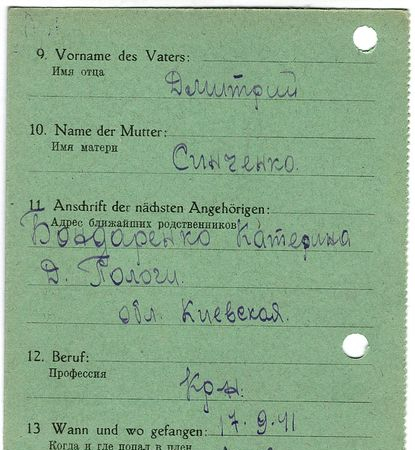 9. Vorname des Vaters:
Имя отца
Дмитрий
10. Name der Mutter:
Имя матери
Синченко.
11. Anschrift der nächsten Angehörigen:
Адрес ближайших родственников
Бондаренко Катерина
Д. Пологи.
обл. Киевская.
12. Beruf:
Профессия
13 Wann und wo gefangen: 17.9.41
Когда и где попал в плен